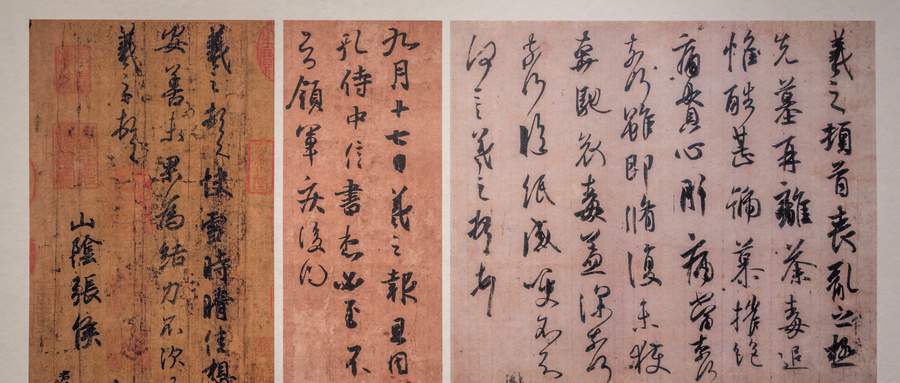 羲之頓首喪亂之極
先墓再離荼毒追
惟酷甚號慕摧絕
痛貫心肝痛當奈何
奈何雖即脩復未獲
奔馳哀毒益深奈何
奈何臨紙感哽不知
何言羲之頓首
九月十七日羲之報且因
孔侍中信書想必至不
知領軍疾後問
羲之頓首快雪時晴佳想
安善未果為結力不次
羲之頓首
山陰張侯